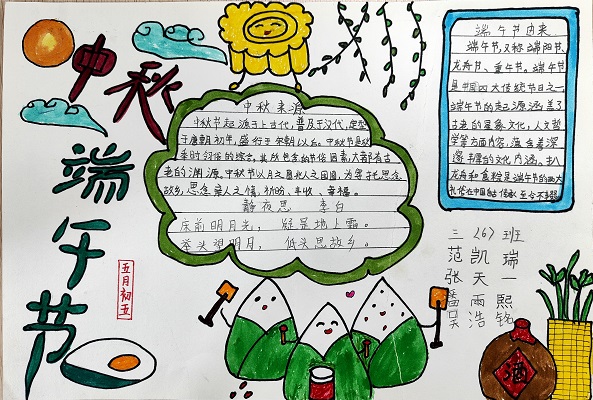 中秋
端午节
五月初五
中秋来源
中秋节起源于上古代，普及于汉代，定型
于唐朝初年，盛行于宋朝以后。中秋节是秋
季时习俗的综合，其所包含的节俗因素，大都有古
老的渊源。中秋节以月之圆兆人之团圆，为寄托思念
故乡，思念亲人之情，祈盼、丰收、幸福。
静夜思 李白
床前明月光，疑是地上霜。
举头望明月，低头思故乡。
端午节由来
端午节，又称端阳节、
龙舟节、重午节。端午节
是中国四大传统节日之一，
端午节的起源涵盖了
古老的星象文化，人文哲
学等方面内容，蕴含着深
邃丰厚的文化内涵，扒
龙舟和食粽是端午节的两大
礼俗在中国传承至今不
三（6）班
范凯瑞
张天一
雨熙
吴浩铭
酒